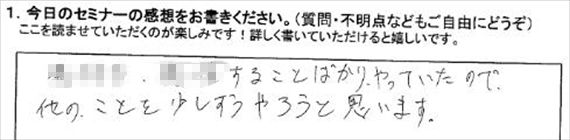 1. 今日のセミナーの感想をお書きください。(質問・不明点などもご自由にどうぞ)
ここを読ませていただくのが楽しみです！詳しく書いていただけると嬉しいです。
することばかりやっていたので、
他の、ことを少しずつやろうと思います。